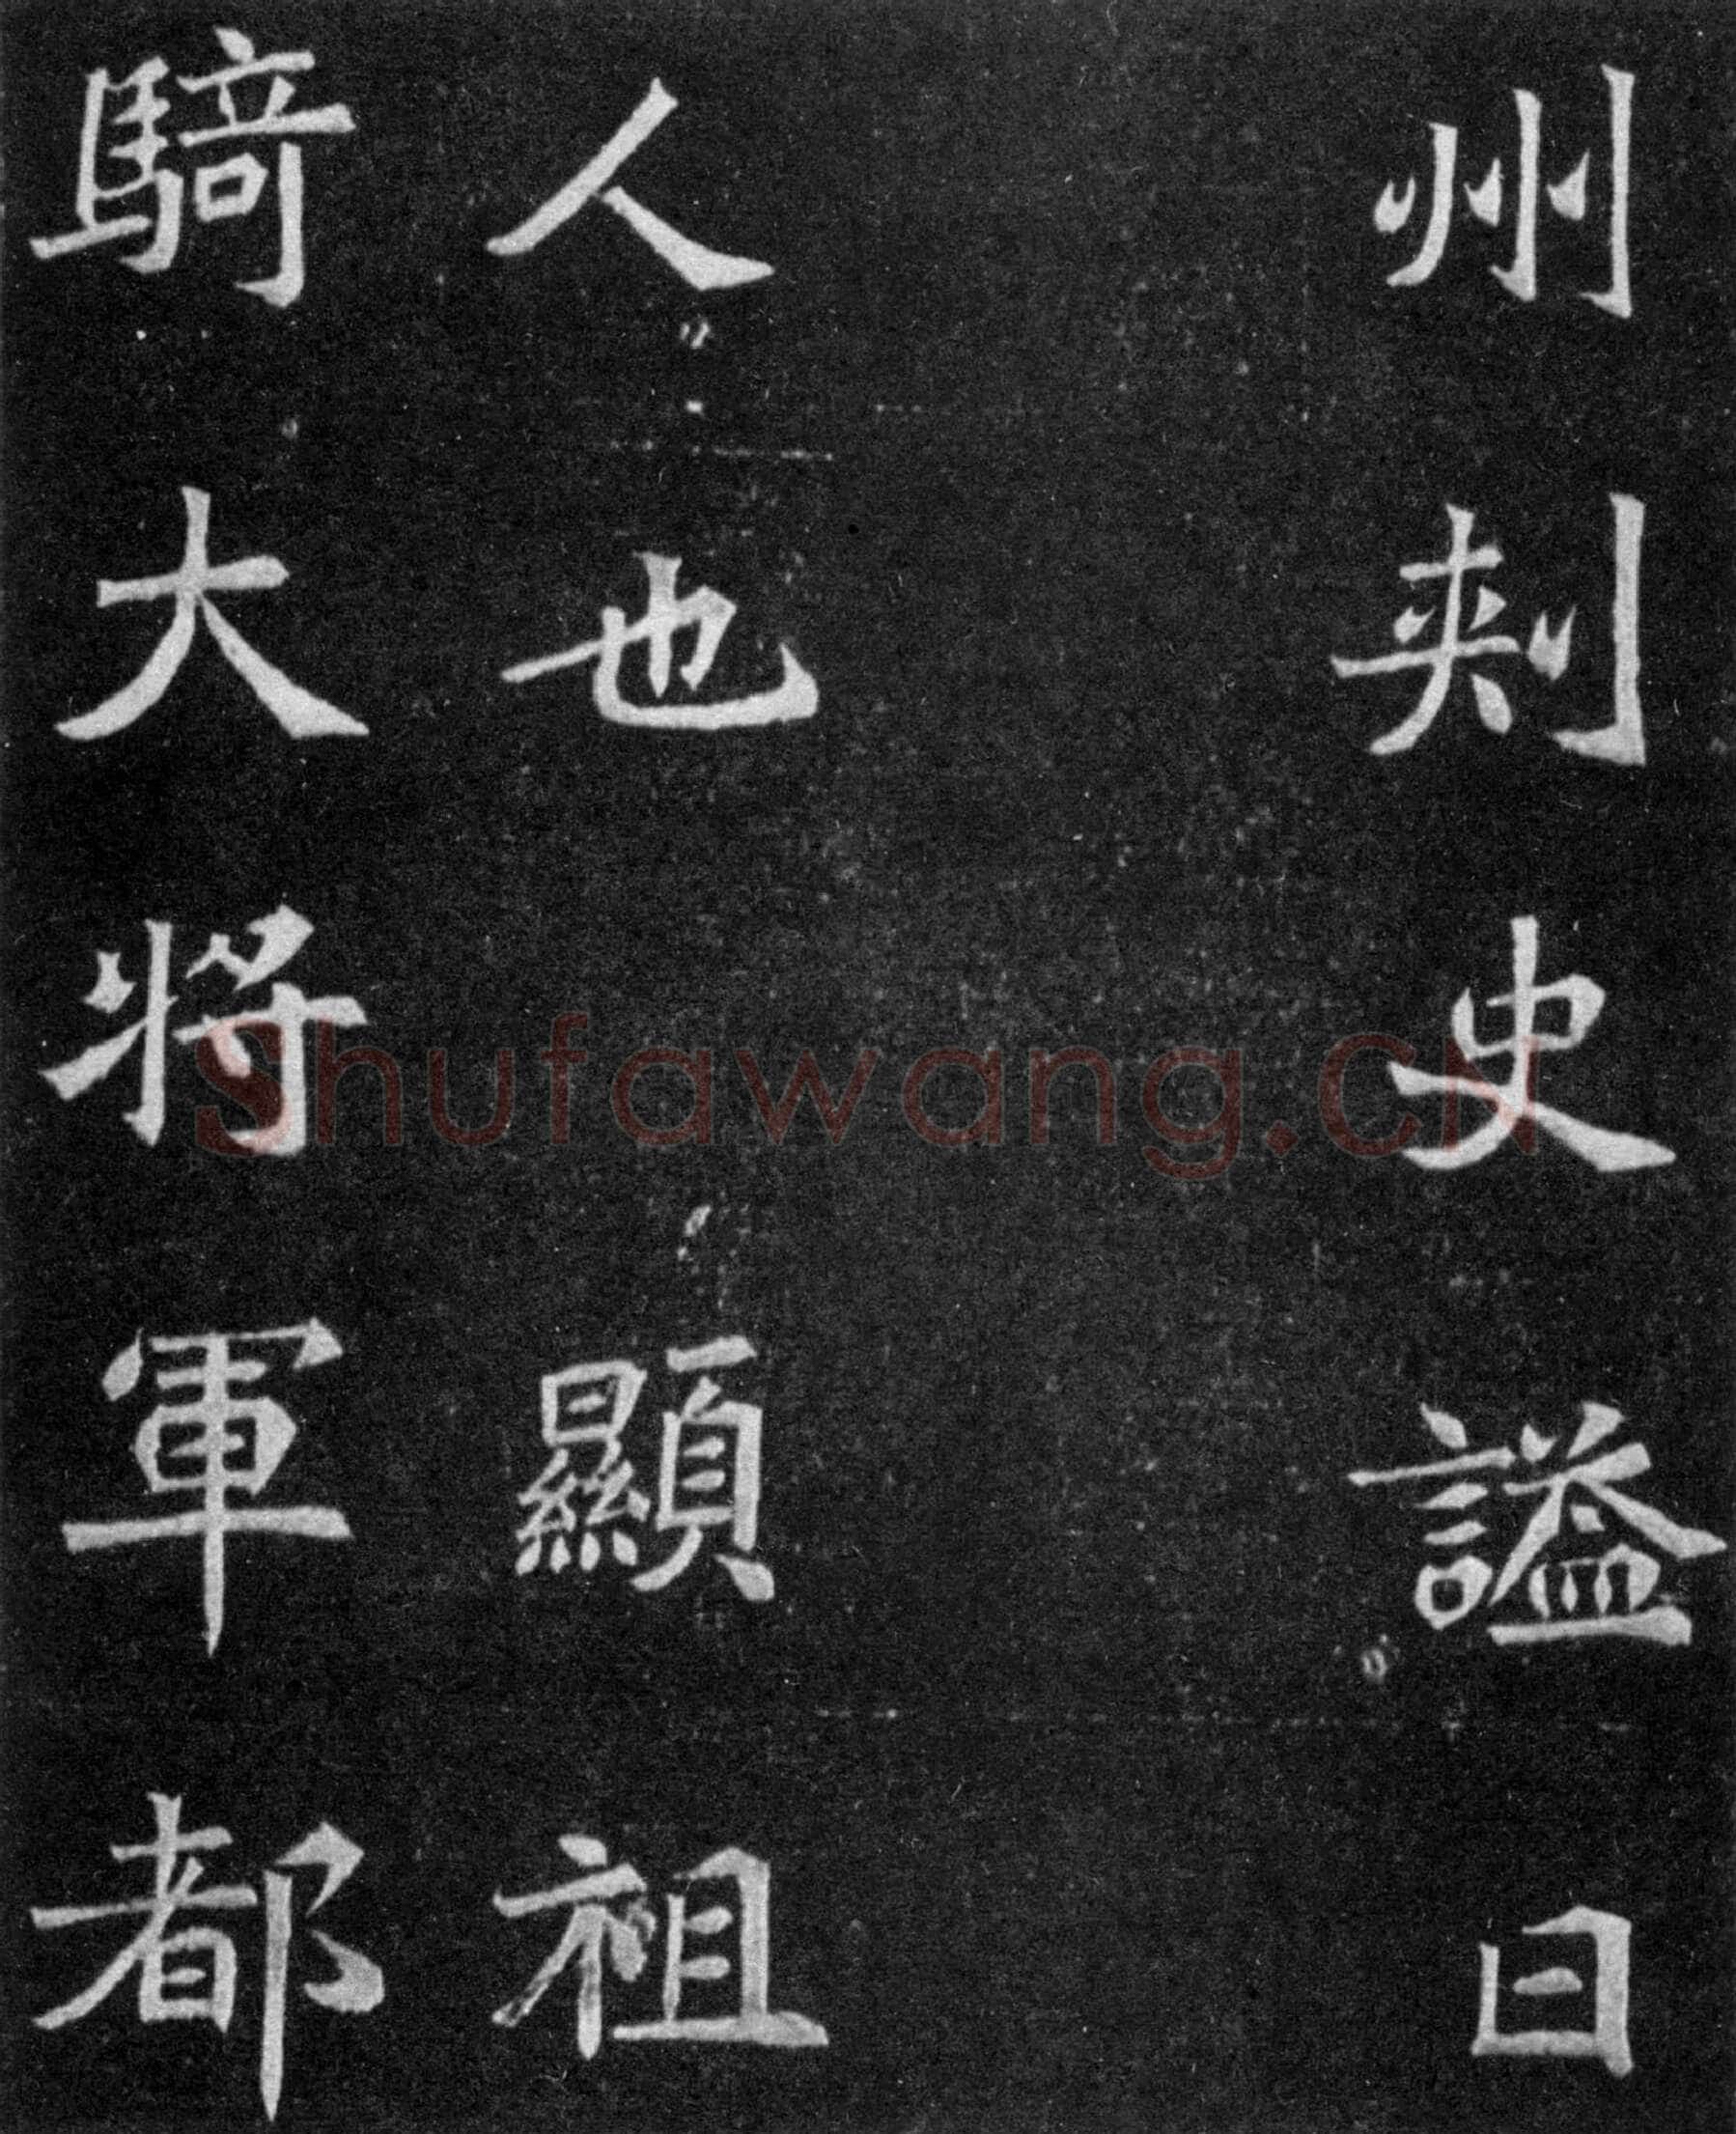 州刺史謚曰
人也顯祖
騎大將軍都
Shufawang.CN